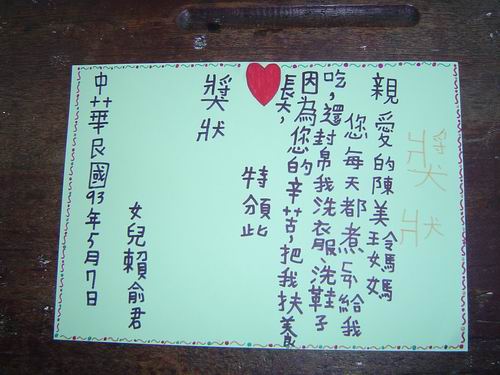 獎狀
親愛的陳美玲媽媽
您每天都煮給我
吃，還幫我洗衣服、洗鞋子
因為您的辛苦，把我扶養
長大，
特頒此
獎狀
女兒賴俞君
中華民國93年5月7日